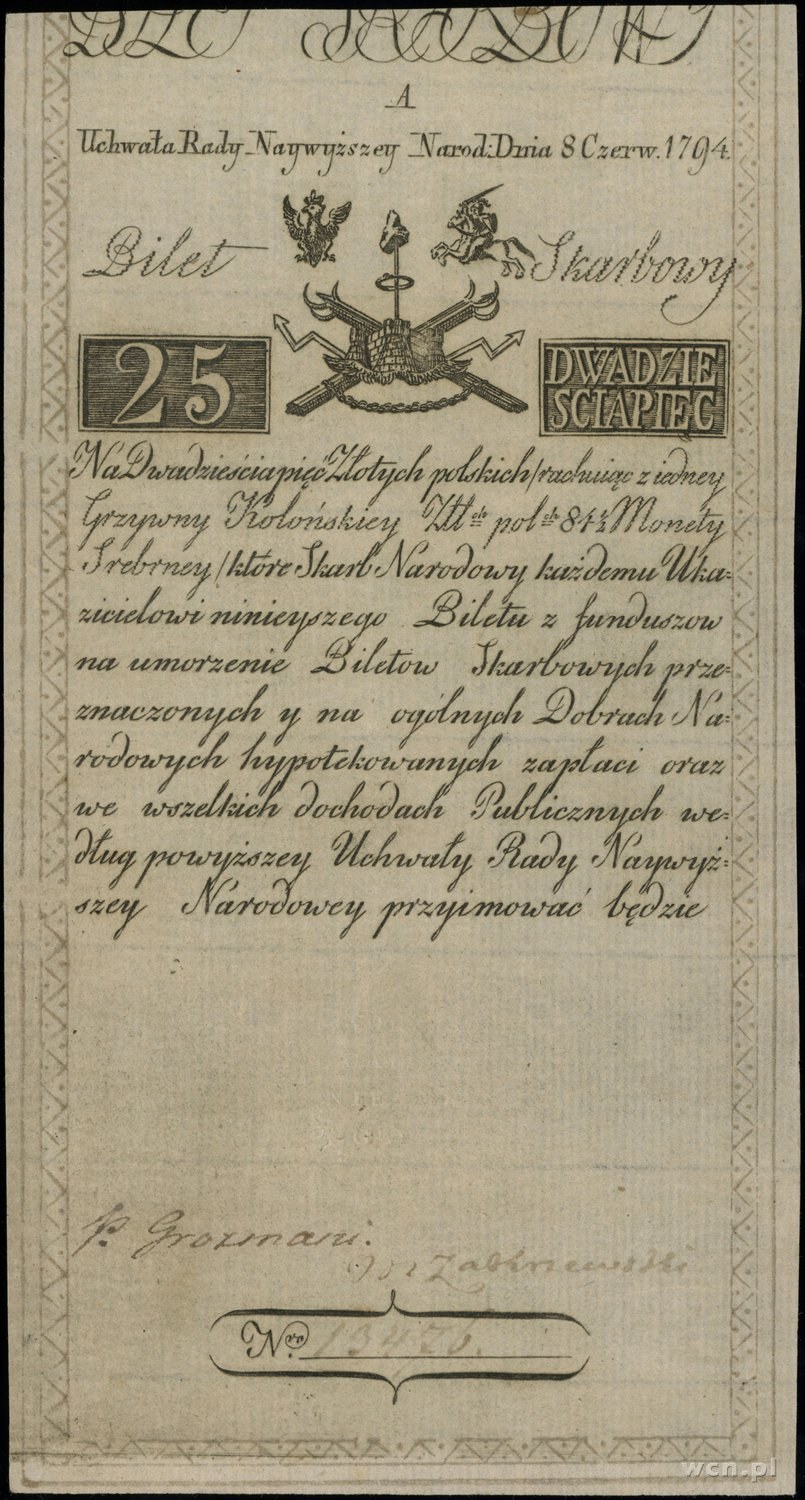 A
Uchwała Rady Naywyższey Narod: Dnia 8 Czerw. 1794.
Bilet Skarbowy
25
DWADZIE
SCIAPIĘC
Na Dwadzieściapięć Złotych polskich / rachuiąc z iedney
Grzywny Kolońskiey Złł:ch pol:ch 84½ Monety
Srebrney / które Skarb Narodowy każdemu Uka=
zicielowi ninieyszego Biletu z funduszow
na umorzenie Biletow Skarbowych prze=
znaczonych y na ogólnych Dobrach Na=
rodowych hypotekowanych zapłaci oraz
we wszelkich dochodach Publicznych we=
dług powyższey Uchwały Rady Naywyż=
szey Narodowey przyimować będzie
P. Grozmani.
Nro 13426.
wcn.pl